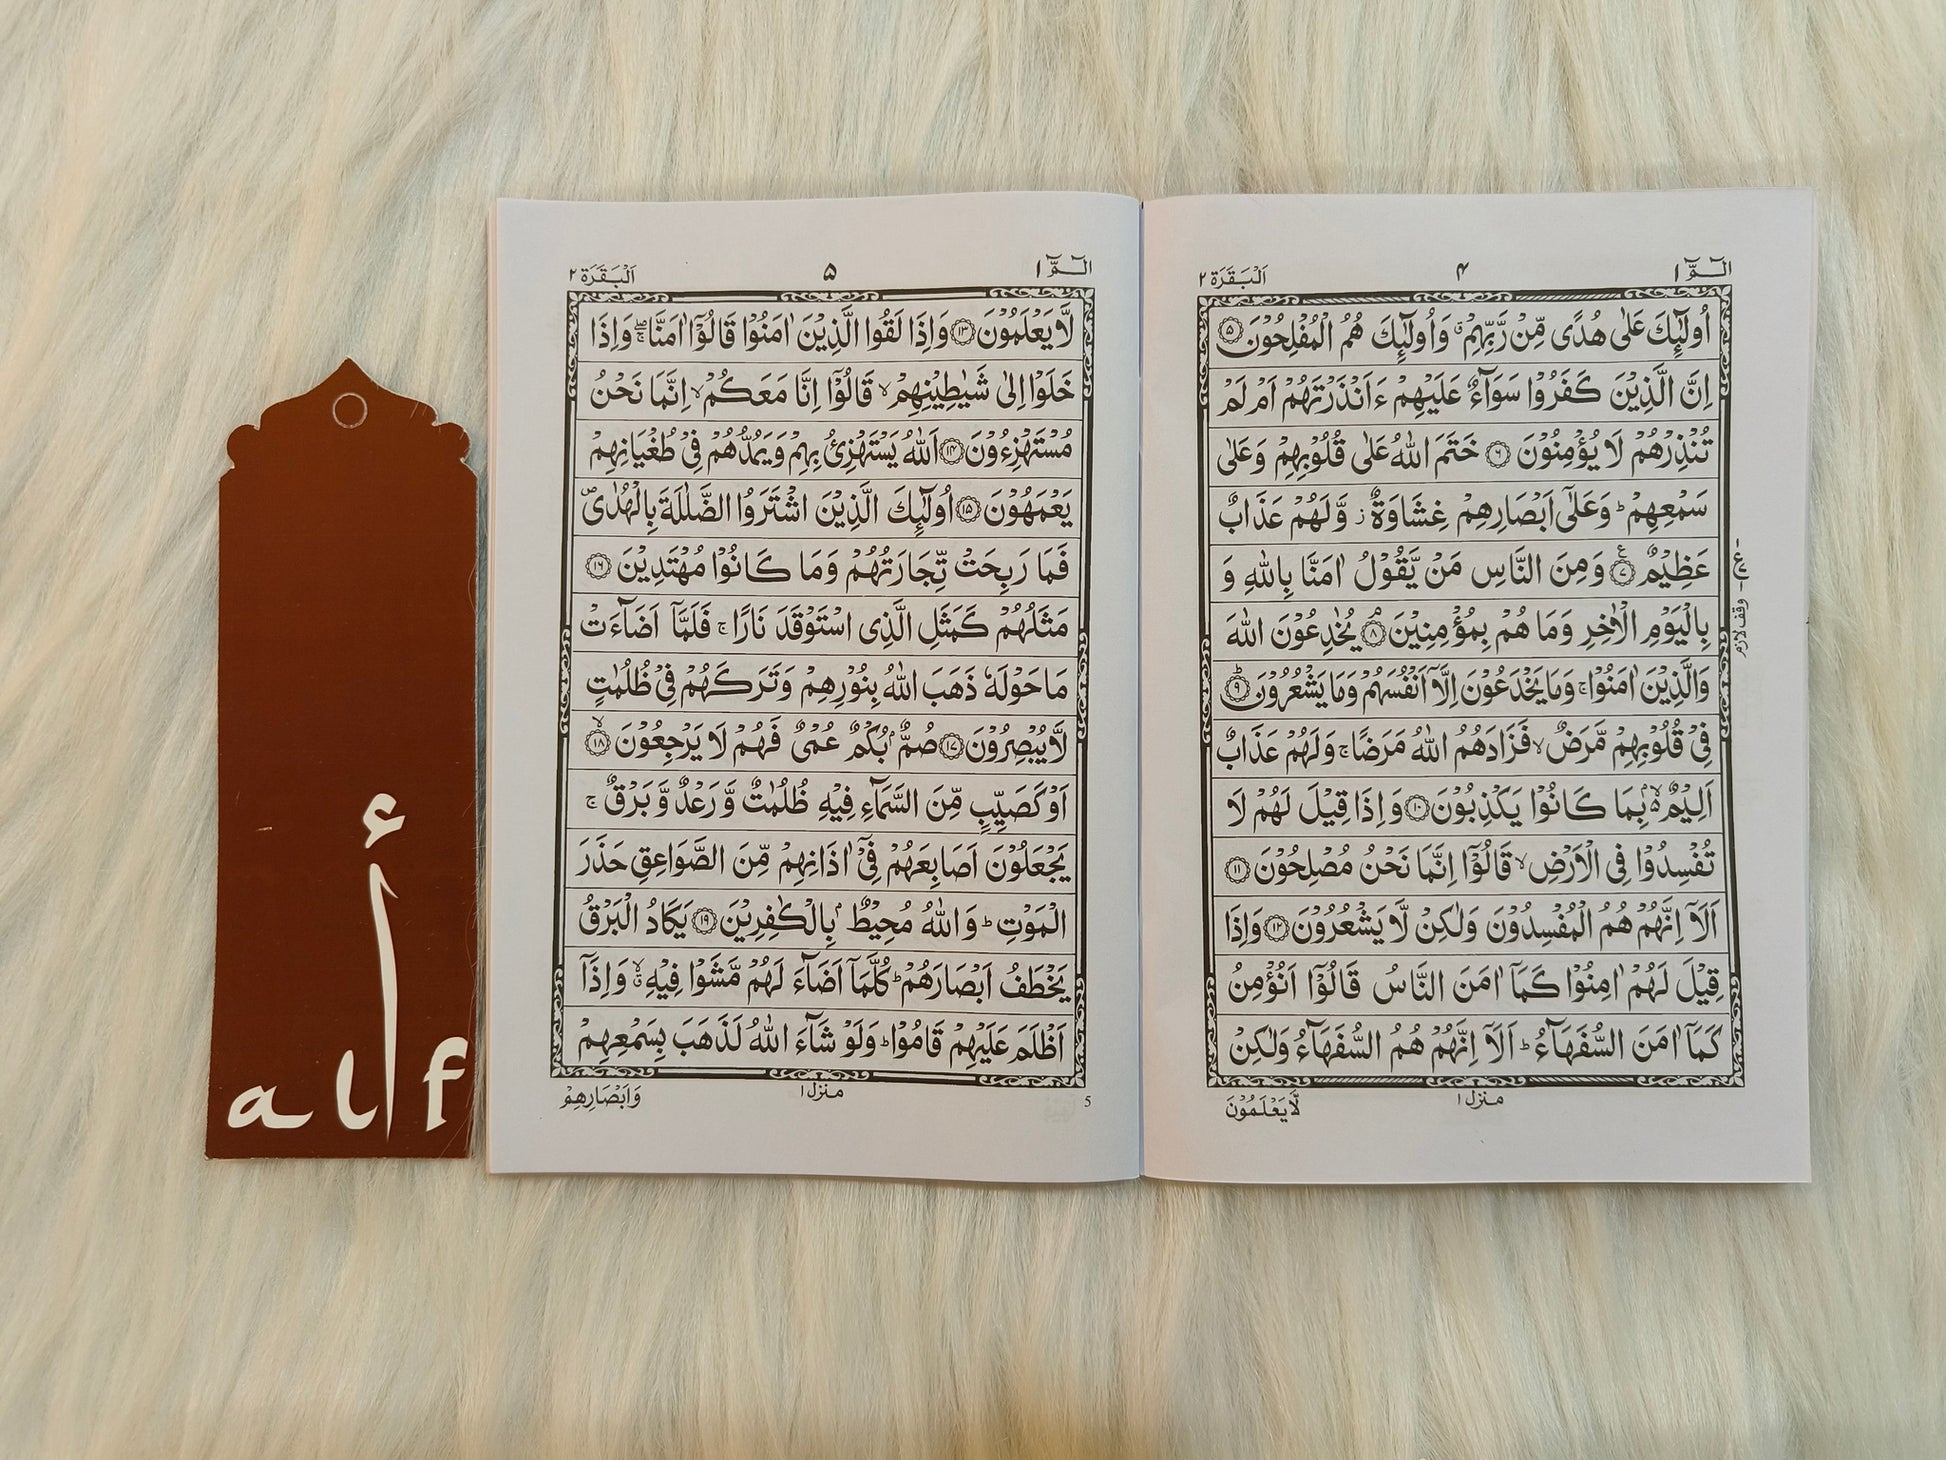 الٓمّٓ ١
٤
اَلْبَقَرَة ٢
اُولٰٓئِكَ عَلٰى هُدًى مِّنْ رَّبِّهِمْ ۗ وَاُولٰٓئِكَ هُمُ الْمُفْلِحُوْنَ ۝٥
اِنَّ الَّذِيْنَ كَفَرُوْا سَوَآءٌ عَلَيْهِمْ ءَاَنْذَرْتَهُمْ اَمْ لَمْ
تُنْذِرْهُمْ لَا يُؤْمِنُوْنَ ۝٦ خَتَمَ اللّٰهُ عَلٰى قُلُوْبِهِمْ وَعَلٰى
سَمْعِهِمْ ؕ وَعَلٰٓى اَبْصَارِهِمْ غِشَاوَةٌ ز وَّلَهُمْ عَذَابٌ
عَظِيْمٌ ۝٧ وَمِنَ النَّاسِ مَنْ يَّقُوْلُ اٰمَنَّا بِاللّٰهِ وَ
بِالْيَوْمِ الْاٰخِرِ وَمَا هُمْ بِمُؤْمِنِيْنَ ۝٨ۘ يُخٰدِعُوْنَ اللّٰهَ
وَالَّذِيْنَ اٰمَنُوْا ۚ وَمَا يَخْدَعُوْنَ اِلَّآ اَنْفُسَهُمْ وَمَا يَشْعُرُوْنَ ۝٩ؕ
فِيْ قُلُوْبِهِمْ مَّرَضٌ ۙ فَزَادَهُمُ اللّٰهُ مَرَضًا ۚ وَلَهُمْ عَذَابٌ
اَلِيْمٌ ۙ۬ بِمَا كَانُوْا يَكْذِبُوْنَ ۝١٠ وَاِذَا قِيْلَ لَهُمْ لَا
تُفْسِدُوْا فِى الْاَرْضِ ۙ قَالُوْٓا اِنَّمَا نَحْنُ مُصْلِحُوْنَ ۝١١
اَلَآ اِنَّهُمْ هُمُ الْمُفْسِدُوْنَ وَلٰكِنْ لَّا يَشْعُرُوْنَ ۝١٢ وَاِذَا
قِيْلَ لَهُمْ اٰمِنُوْا كَمَآ اٰمَنَ النَّاسُ قَالُوْٓا اَنُؤْمِنُ
كَمَآ اٰمَنَ السُّفَهَآءُ ؕ اَلَآ اِنَّهُمْ هُمُ السُّفَهَآءُ وَلٰكِنْ
منزل ١
لَّا يَعْلَمُوْنَ
وقف لازم
الٓمّٓ ١
٥
اَلْبَقَرَة ٢
لَّا يَعْلَمُوْنَ ۝١٣ وَاِذَا لَقُوا الَّذِيْنَ اٰمَنُوْا قَالُوْٓا اٰمَنَّا ۖۚ وَاِذَا
خَلَوْا اِلٰى شَيٰطِيْنِهِمْ ۙ قَالُوْٓا اِنَّا مَعَكُمْ ۙ اِنَّمَا نَحْنُ
مُسْتَهْزِءُوْنَ ۝١٤ اَللّٰهُ يَسْتَهْزِئُ بِهِمْ وَيَمُدُّهُمْ فِيْ طُغْيَانِهِمْ
يَعْمَهُوْنَ ۝١٥ اُولٰٓئِكَ الَّذِيْنَ اشْتَرَوُا الضَّلٰلَةَ بِالْهُدٰى ۪
فَمَا رَبِحَتْ تِّجَارَتُهُمْ وَمَا كَانُوْا مُهْتَدِيْنَ ۝١٦
مَثَلُهُمْ كَمَثَلِ الَّذِى اسْتَوْقَدَ نَارًا ۚ فَلَمَّآ اَضَآءَتْ
مَا حَوْلَهٗ ذَهَبَ اللّٰهُ بِنُوْرِهِمْ وَتَرَكَهُمْ فِيْ ظُلُمٰتٍ
لَّا يُبْصِرُوْنَ ۝١٧ صُمٌّۢ بُكْمٌ عُمْىٌ فَهُمْ لَا يَرْجِعُوْنَ ۝١٨ۙ
اَوْ كَصَيِّبٍ مِّنَ السَّمَآءِ فِيْهِ ظُلُمٰتٌ وَّ رَعْدٌ وَّ بَرْقٌ ۚ
يَجْعَلُوْنَ اَصَابِعَهُمْ فِيْٓ اٰذَانِهِمْ مِّنَ الصَّوَاعِقِ حَذَرَ
الْمَوْتِ ؕ وَاللّٰهُ مُحِيْطٌۢ بِالْكٰفِرِيْنَ ۝١٩ يَكَادُ الْبَرْقُ
يَخْطَفُ اَبْصَارَهُمْ ؕ كُلَّمَآ اَضَآءَ لَهُمْ مَّشَوْا فِيْهِ ۙۗ وَاِذَآ
اَظْلَمَ عَلَيْهِمْ قَامُوْا ؕ وَلَوْ شَآءَ اللّٰهُ لَذَهَبَ بِسَمْعِهِمْ
منزل ١
وَاَبْصَارِهِمْ
5
أ
alf